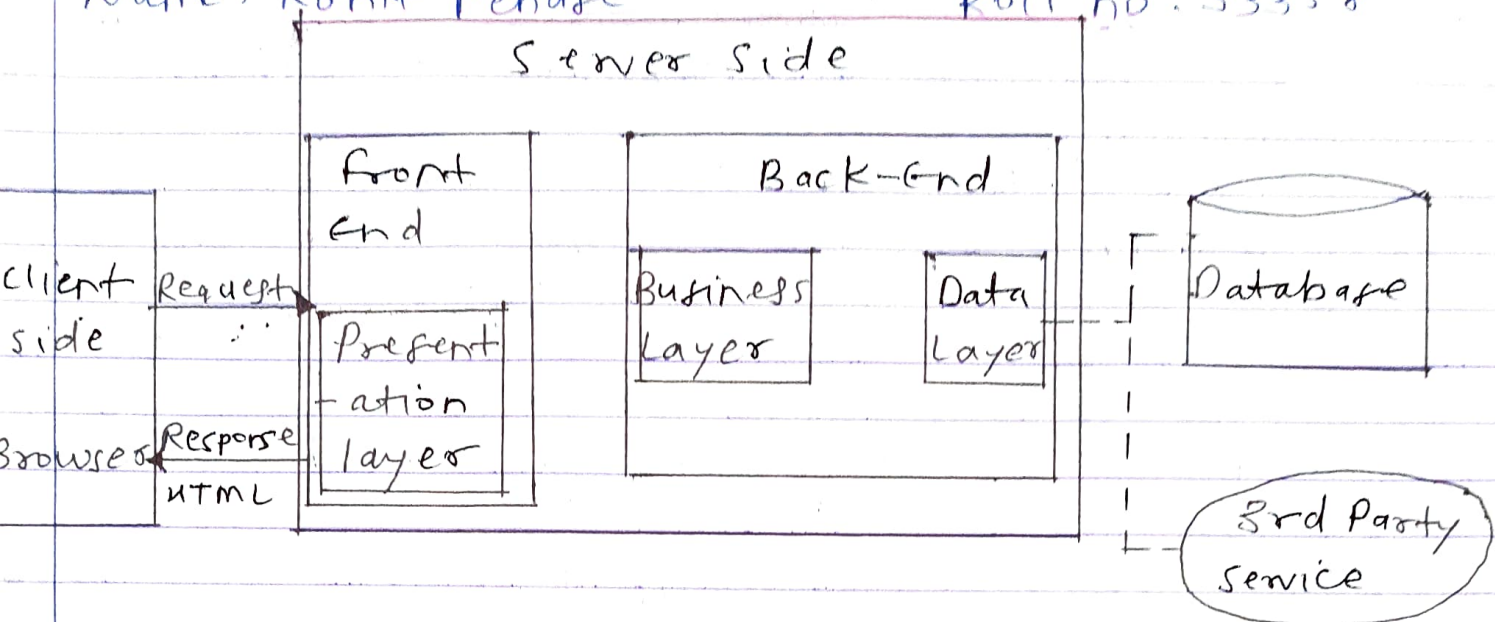 Server Side
Front
End
Back-End
Client
side
Request
Present
ation
layer
Business
Layer
Data
Layer
Database
Browser
Response
HTML
3rd Party
service